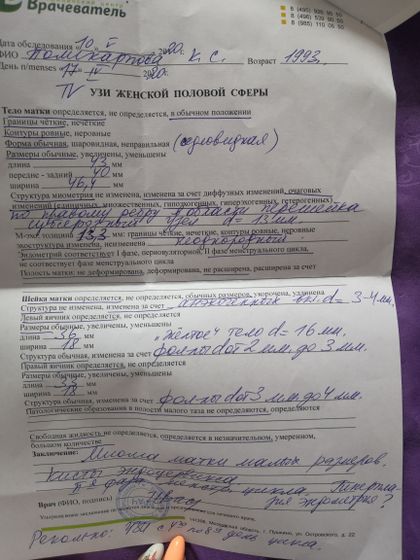 Врачеватель
8 (495) 926 50
8 (496) 539 50
8 (985) 110 06 50
Дата обследования "10" V 2020г.
ФИО К. С. Возраст 1993г.
День п/menses "17" IV 2020г.
IV УЗИ ЖЕНСКОЙ ПОЛОВОЙ СФЕРЫ
Тело матки определяется, не определяется, в обычном положении
Границы чёткие, нечёткие
Контуры ровные, неровные
Форма обычная, шаровидная, неправильная (седловидная)
Размеры обычные, увеличены, уменьшены
длина 43 мм
передне - задний 40 мм
ширина 46,4 мм
Структура миометрия не изменена, изменена за счет диффузных изменений, очаговых
изменений (единичных, множественных, гипоэхогенных, гиперэхогенных, гетерогенных)
по правому ребру в области перешейка
субсерозный узел d= 13 мм.
М-эхо, толщина 13,2 мм; границы чёткие, нечеткие, контуры ровные, неровные
эхоструктура изменена, неизменена неоднородный
Эндометрий соответствует I фазе, периовуляторной, II фазе менструального цикла,
не соответствует фазе менструального цикла
Полость матки: не деформирована, деформирована, не расширена, расширена за счет
Шейка матки определяется, не определяется, обычных размеров, укорочена, удлинена
Структура не изменена, изменена за счет анэхогенных вкл d= 3-4мм.
Левый яичник определяется, не определяется
Размеры обычные, увеличены, уменьшены
длина 36 мм "жёлтое" тело d= 16 мм.
ширина 18 мм
Структура обычная, изменена за счет фол-лы d от 2 мм. до 3 мм.
Правый яичник определяется, не определяется
Размеры обычные, увеличены, уменьшены
длина 33 мм
ширина 18 мм
Структура обычная, изменена за счет фол-лы d от 3 мм. до 4 мм.
Патологические образования в полости малого таза не определяются, определяются
Свободная жидкость не определяется, определяется в незначительном, умеренном,
большом количестве
Заключение: Миома матки малых размеров.
Кисты эндоцервикса
II я фаза цикла. Гиперпла-
зия эндометрия?
Врач (ФИО, подпись)
Московская область, г. Пушкино, ул. Островского, д. 22
Рекоменд: УЗИ с 7 по 9 день цикла.